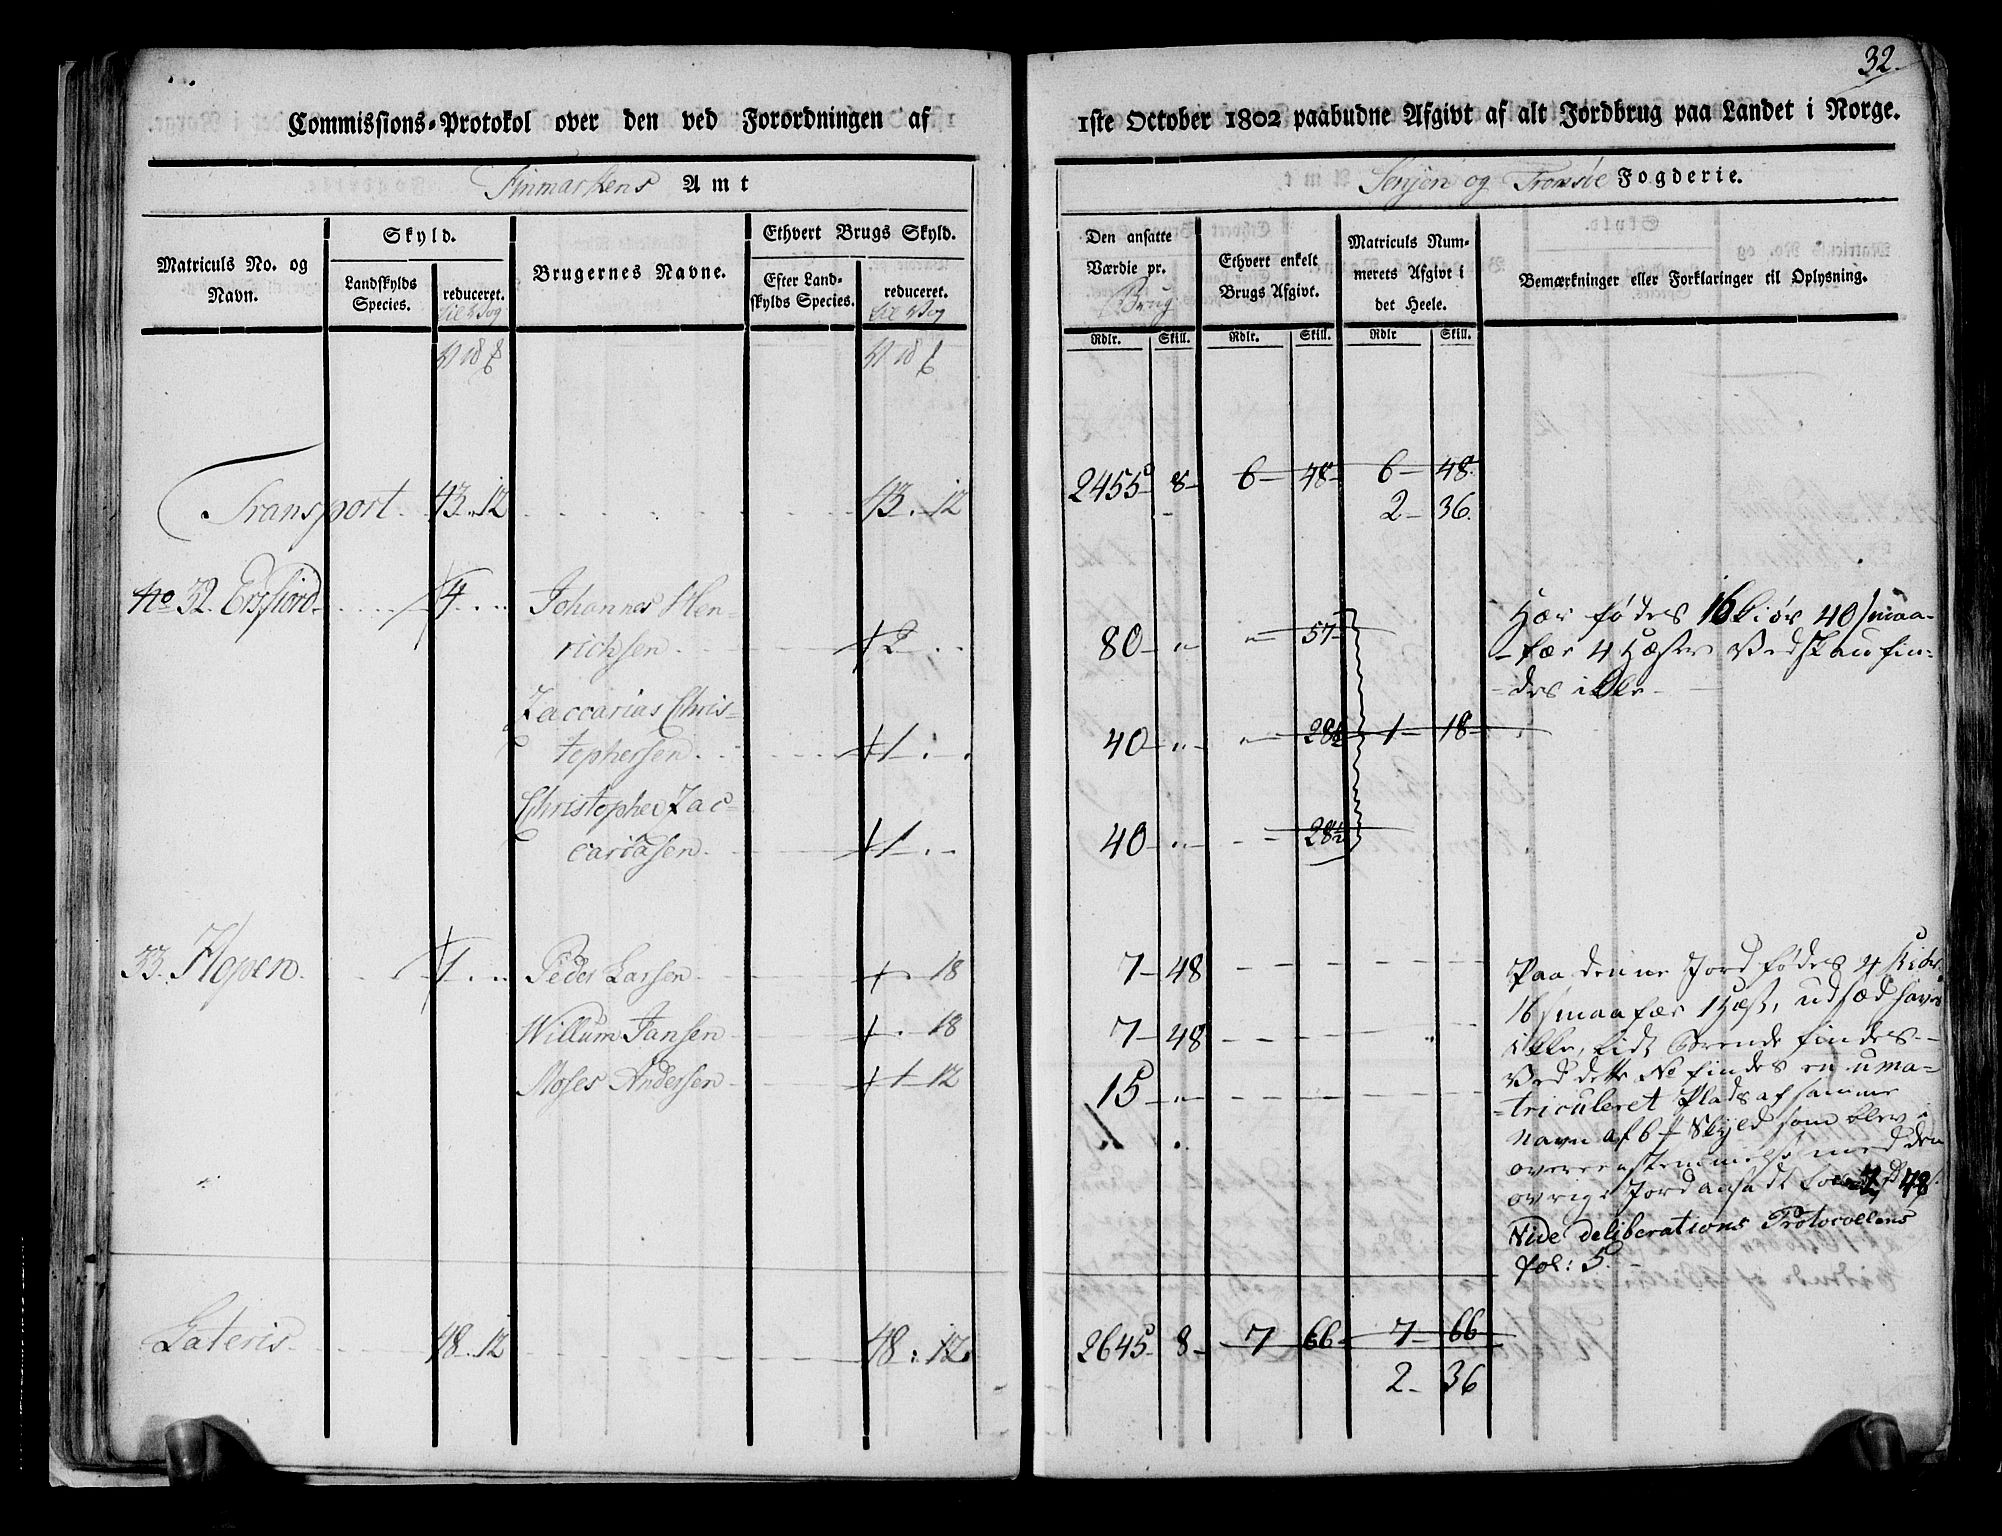 32.
Commissions-Protokol over den ved Forordningen af
1ste October 1802 paabudne Afgivt af alt Jordbrug paa Landet i Norge.
Finmarkens Amt
Senjen og Tromsöe Fogderie.
Matriculs No. og Navn.
Skyld.
Landskylds Species.
reduceret.
Brugernes Navne.
Ethvert Brugs Skyld.
Efter Landskylds Species.
reduceret.
Den ansatte Værdie pr. Brug
Ethvert enkelt Brugs Afgivt.
Matriculs Nummerets Afgivt i det Heele.
Bemærkninger eller Forklaringer til Oplysning.
Rdlr. Skill. Rdlr. Skill. Rdlr Skill.
Transport 43. 12 43. 12 2455 8 6 48 6 48.
2 36.
No 32. Ersfiord 4 Johannes Hen-
richsen 2 80 " " 57
Zaccarias Chris-
tophersen 1 40 " " 28½ 1 18
Christopher Zac-
cariasen 1 40 " 28½
Her fødes 16 Kiør 40 smaa-
fæe 4 Heste Vedskau fin-
des ikke
33. Hopen 1 Peder Larsen 18 7 48
Willum Jansen 18 7 48
Moses Andersen 1 12 15 "
Paa denne Jord fødes 4 Kiør
16 smaafæe 1 Hest, udsæd haves
ikke, lidt Brende findes
Ved dette No findes en uma-
triculeret Plads af samme
navn af 6 Skyld som blev i
overeenstemmelse med den
øvrige Jord ansadt for 7 48
Vide deliberations Protocollens
fol: 5.
Lateris 48. 12 48. 12. 2645 8 7 66 7 66
2 36